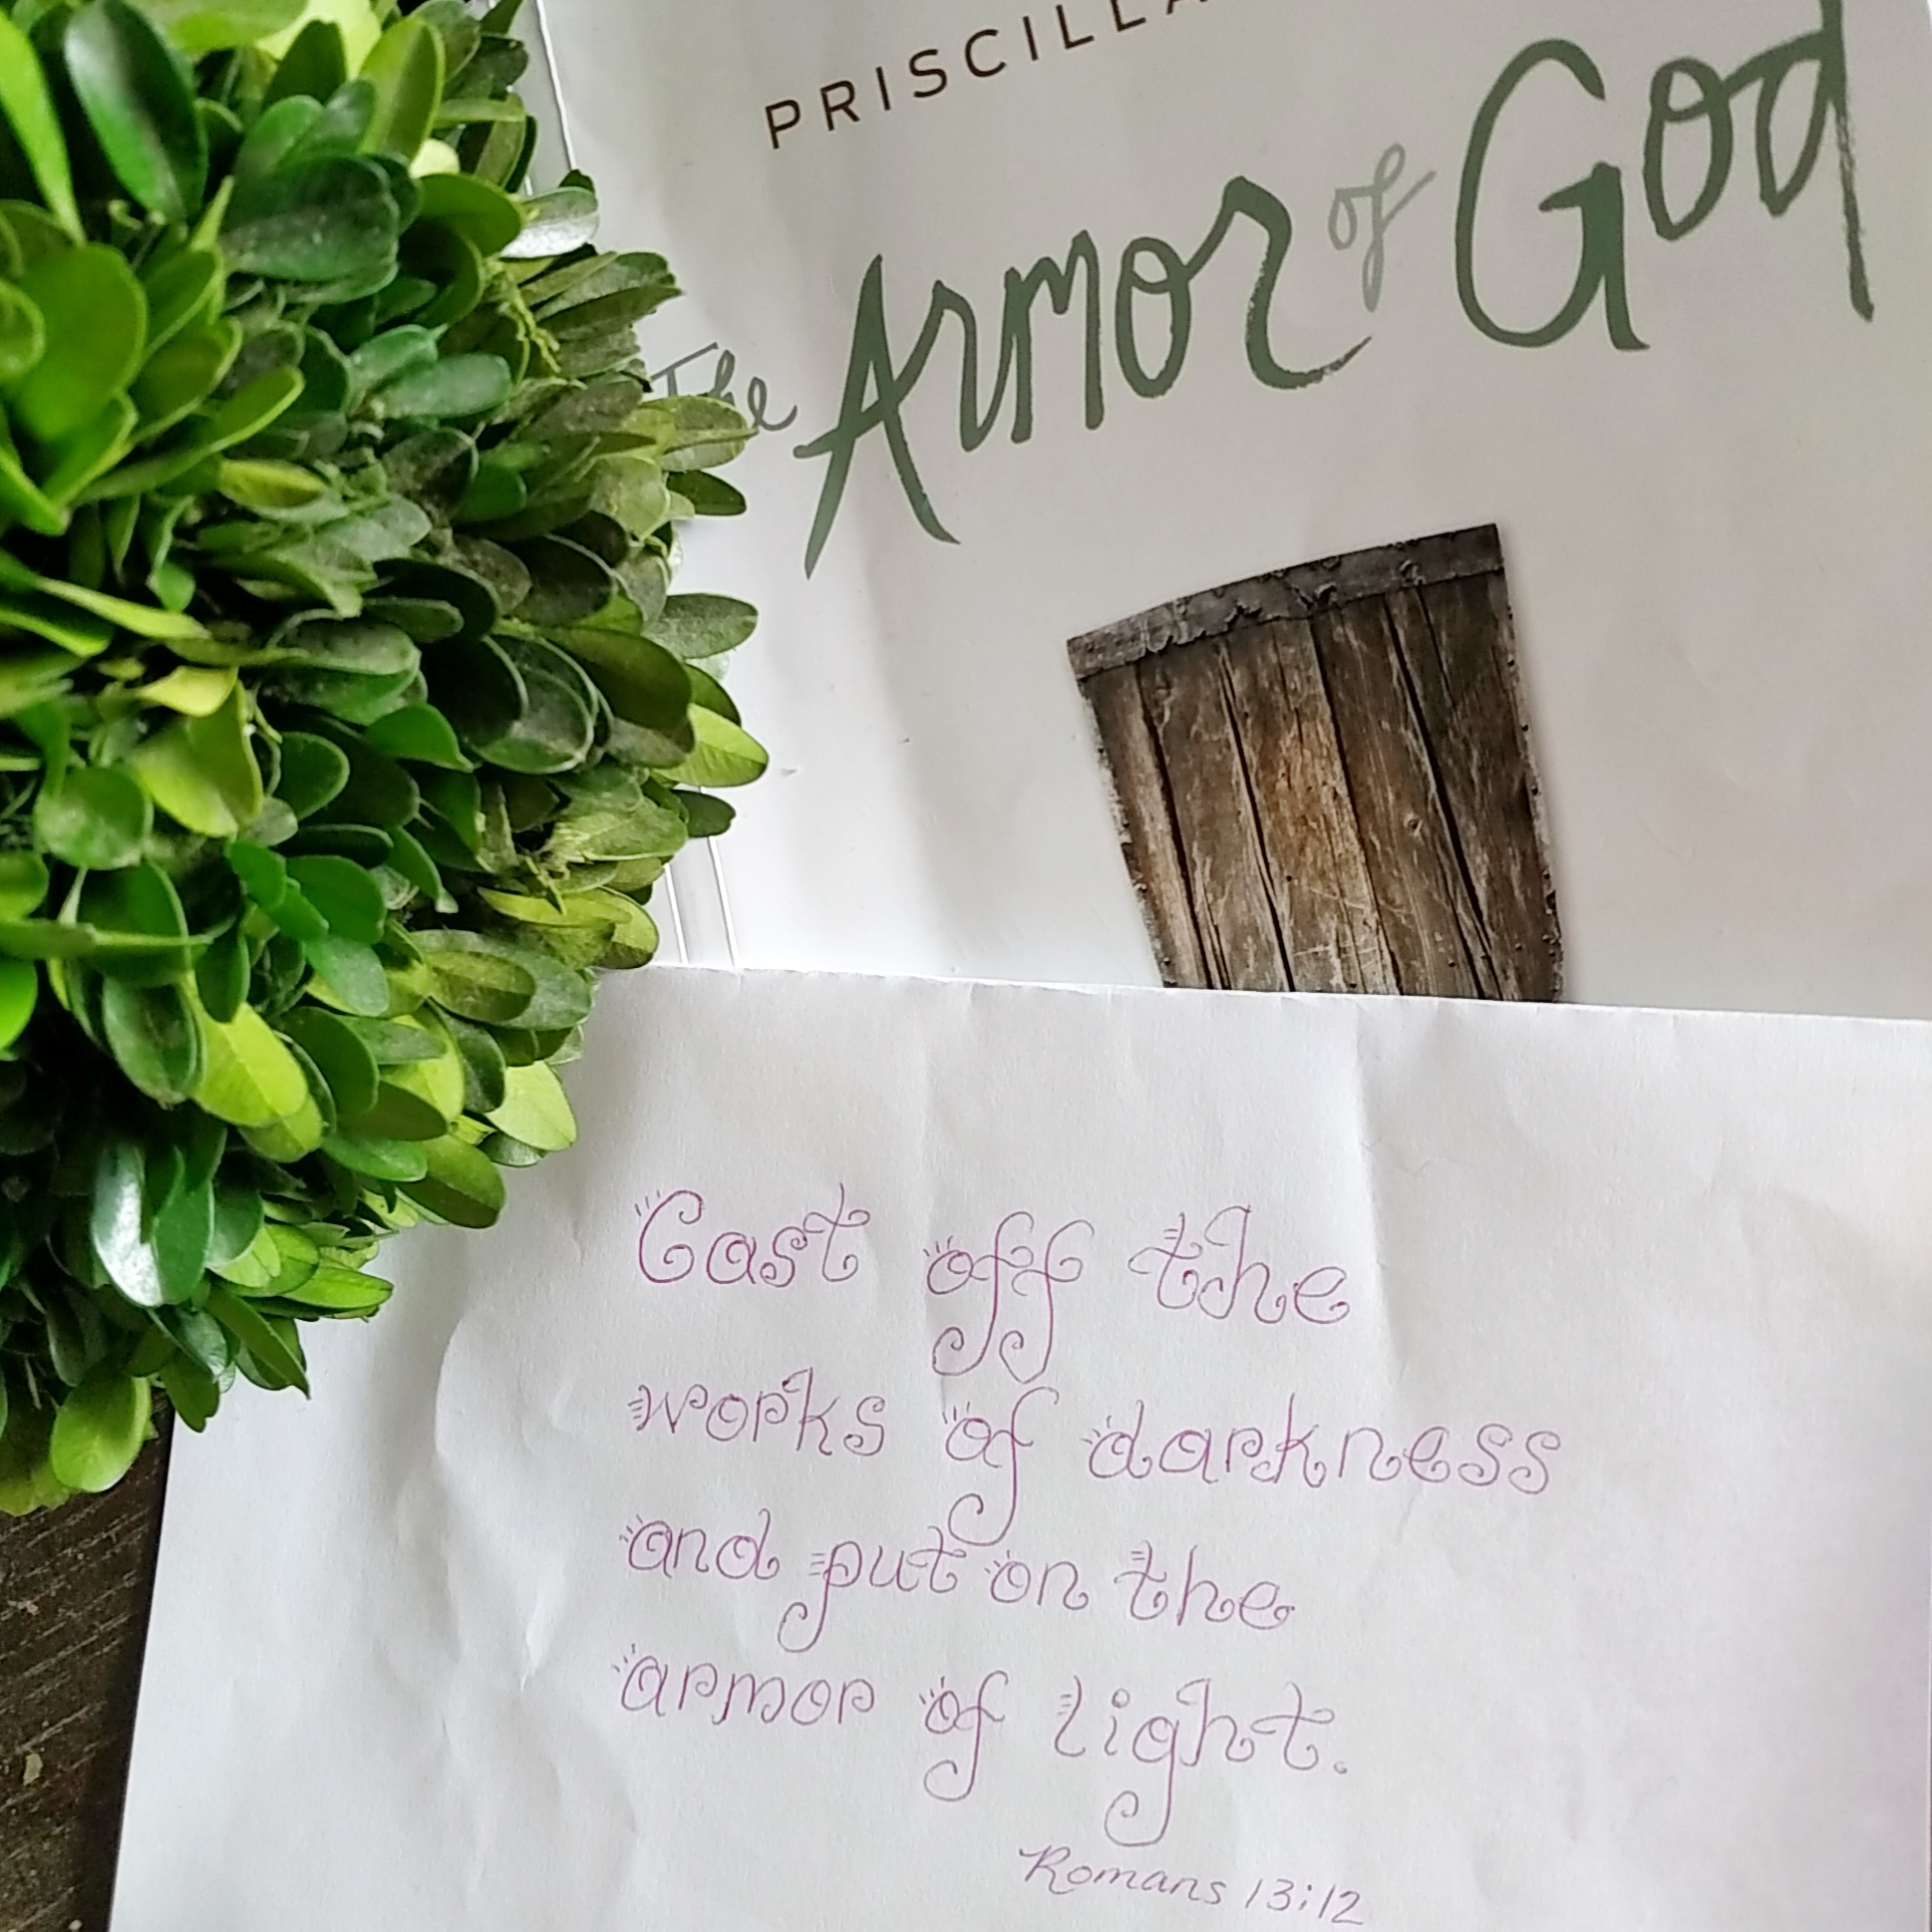 PRISCILLA
The Armor of God
Cast off the
works of darkness
and put on the
armor of light.
Romans 13:12